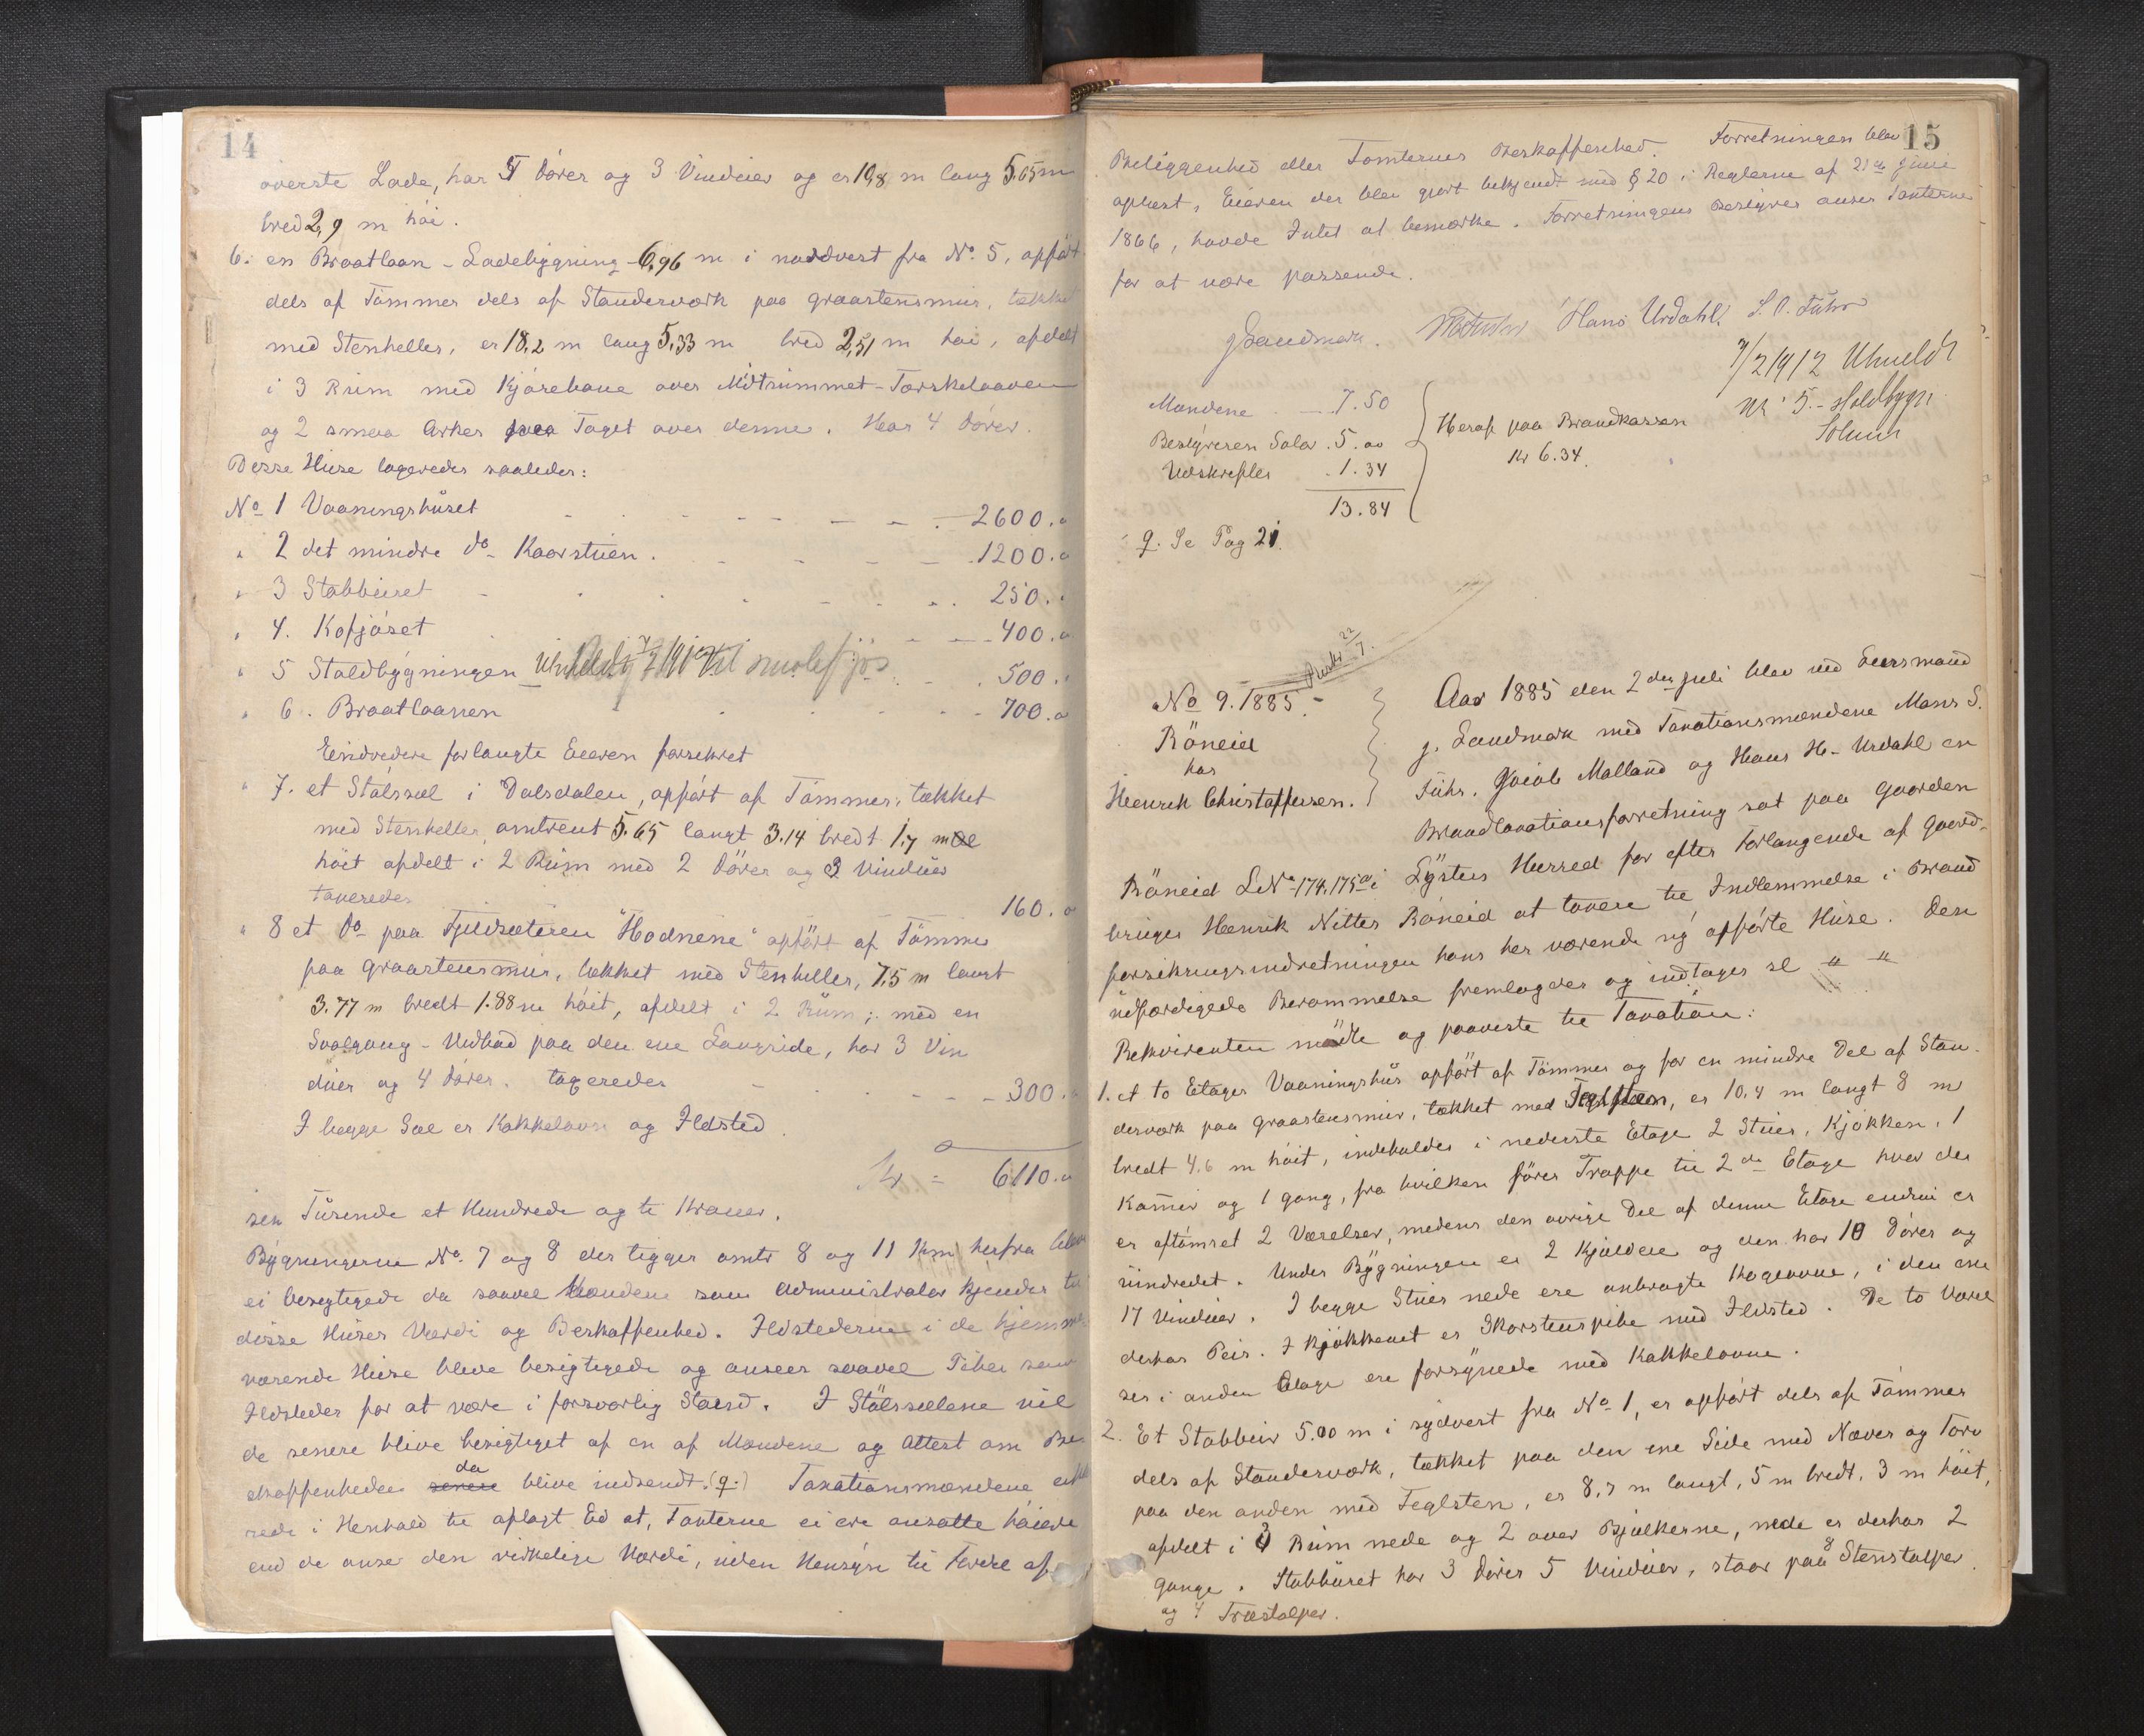 14
øverste Lade, har 5 Dører og 3 Vinduer og er 19,8 m lang 5.65 m
bred 2,9 m høi.
6. en Braatlaan - Ladebygning - 6,96 m i nordvest fra No. 5, opført
dels af Tømmer dels af Standerværk paa Graastensmur, tækket
med Stenheller, er 18,2 m lang 5,33 m bred 2,51 m høi, afdelt
i 3 Rum med Kjørebane over Midtrummet - Torskelaaven
og 2 smaa Arker paa Taget over denne. Har 4 Dører.
Disse Huse taxeredes saaledes:
No 1 Vaaningshuset - - - - - 2600.
" 2 det mindre do - Kaarstuen. - - - 1200.
" 3 Stabburet - - - 250.
" 4. Kofjøset - - - 400.
" 5 Staldbygningen Uhmeldt 7/2 1912 til smalefjøs 500.
" 6. Braatlaanen - - - 700.
Endvidere forlangte Eieren forsikret
" 7. et Stølssæl i Dalsdalen, opført af Tømmer, tækket
med Stenheller, omtrent 5.65 langt 3.14 bredt 1,7 m
høit afdelt i 2 Rum med 2 Dører og 2 Vinduer
taxeredes 160.
" 8 et do paa Fjeldsæteren "Hodnene" opført af Tømmer
paa Graastensmur, tækket med Stenheller, 7,5 m langt
3.77 m bredt 1.88 m høit, afdelt i 2 Rum; med en
Svalgang - Vedbod paa den ene Langside, har 3 Vin
duer og 4 Dører. taxeredes - - - 300.
I begge Sæl er Kakkelovn og Ildsted.
Kr = 6110.
sex Tusende et Hundrede og ti Kroner.
Bygningerne No. 7 og 8 der ligger omtr 8 og 11 Km herfra blev
ei besigtigede da saavel Mændene som Administrator kjender til
disse Huses Værdi og Beskaffenhed. Ildstederne i de hjemme
værende Huse bleve besigtigede og ansees saavel Piber som
Ildsteder for at være i forsvarlig Stand. I Stølssælene vil
de senere blive besigtiget af en af Mændene og Attest om Be
skaffenheden senere da blive indsendt. (q.) Taxationsmændene erklæ
rede i Henhold til aflagt Ed at, Taxterne ei ere ansatte høiere
end de anse den virkelige Værdi, uden Hensyn til Fordel af
15
Beliggenhed eller Tomternes Beskaffenhed. Forretningen blev
oplæst, Eieren der blev gjort bekjendt med § 20 i Reglerne af 21de Juni
1866, havde Intet at bemærke. Forretningens Bestyrer anser Taxterne
for at være passende.
J Landmark. Hans Urdahl. S. O. Fuhr
7/2 1912 Uhmeldt
Nr. 5. - Staldbygn.
Solum
Mændene - 7.50
Bestyreren Salar. 5.00
Udskrifter - 1.34
13.84
Heraf paa Brandkassen
Kr 6.34.
q. Se Pag 21.
22/7.
No 9. 1885. -
Röneid
hos
Henrik Christoffersen.
Aar 1885 den 2den Juli blev ved Lensmand
J. Landmark med Taxationsmændene Mons S.
Fuhr. Jacob Malland og Hans H. Urdahl en
Brandtaxationsforretning sat paa Gaarden
Röneid LNo 174.175a i Lÿster Herred for efter Forlangende af Gaard-
bruger Henrik Nitter Röneid at taxere til Indlemmelse i Brand
forsikringsindretningen hans her værende ny opførte Huse. Den
udfærdigede Berammelse fremlagdes og indtages sl " "
Rekvirenten mødte og paaviste til Taxation:
1. et to Etages Vaaningshus opført af Tømmer og for en mindre Del af Stan-
derværk paa Graastensmur, tækket med Teglsten, er 10.4 m langt 8 m
bredt 4.6 m høit, indeholder i nederste Etage 2 Stuer, Kjøkken, 1
Kammer og 1 Gang, fra hvilken fører Trappe til 2den Etage hvor der
er aftømret 2 Værelser, medens den øvrige Del af denne Etage endnu er
uindredet. Under Bygningen er 2 Kjældere og den har 10 Dører og
17 Vinduer. I begge Stuer nede ere anbragte Kogeovne, i den ene
derhos Peis. I Kjøkkenet er Skorstenspibe med Ildsted. De to Værel
ser i anden Etage ere forsynede med Kakkelovne.
2. Et Stabbur 5.00 m i sydvest fra No 1, er opført dels af Tømmer
dels af Standerværk, tækket paa den ene Side med Næver og Torv
paa den anden med Teglsten, er 8.7 m langt, 5 m bredt, 3 m høit,
afdelt i 3 Rum nede og 2 over Bjælkerne, nede er derhos 2
gange. Stabburet har 3 Dører 5 Vinduer, staar paa 8 Stenstolper
og 4 Træstolper.